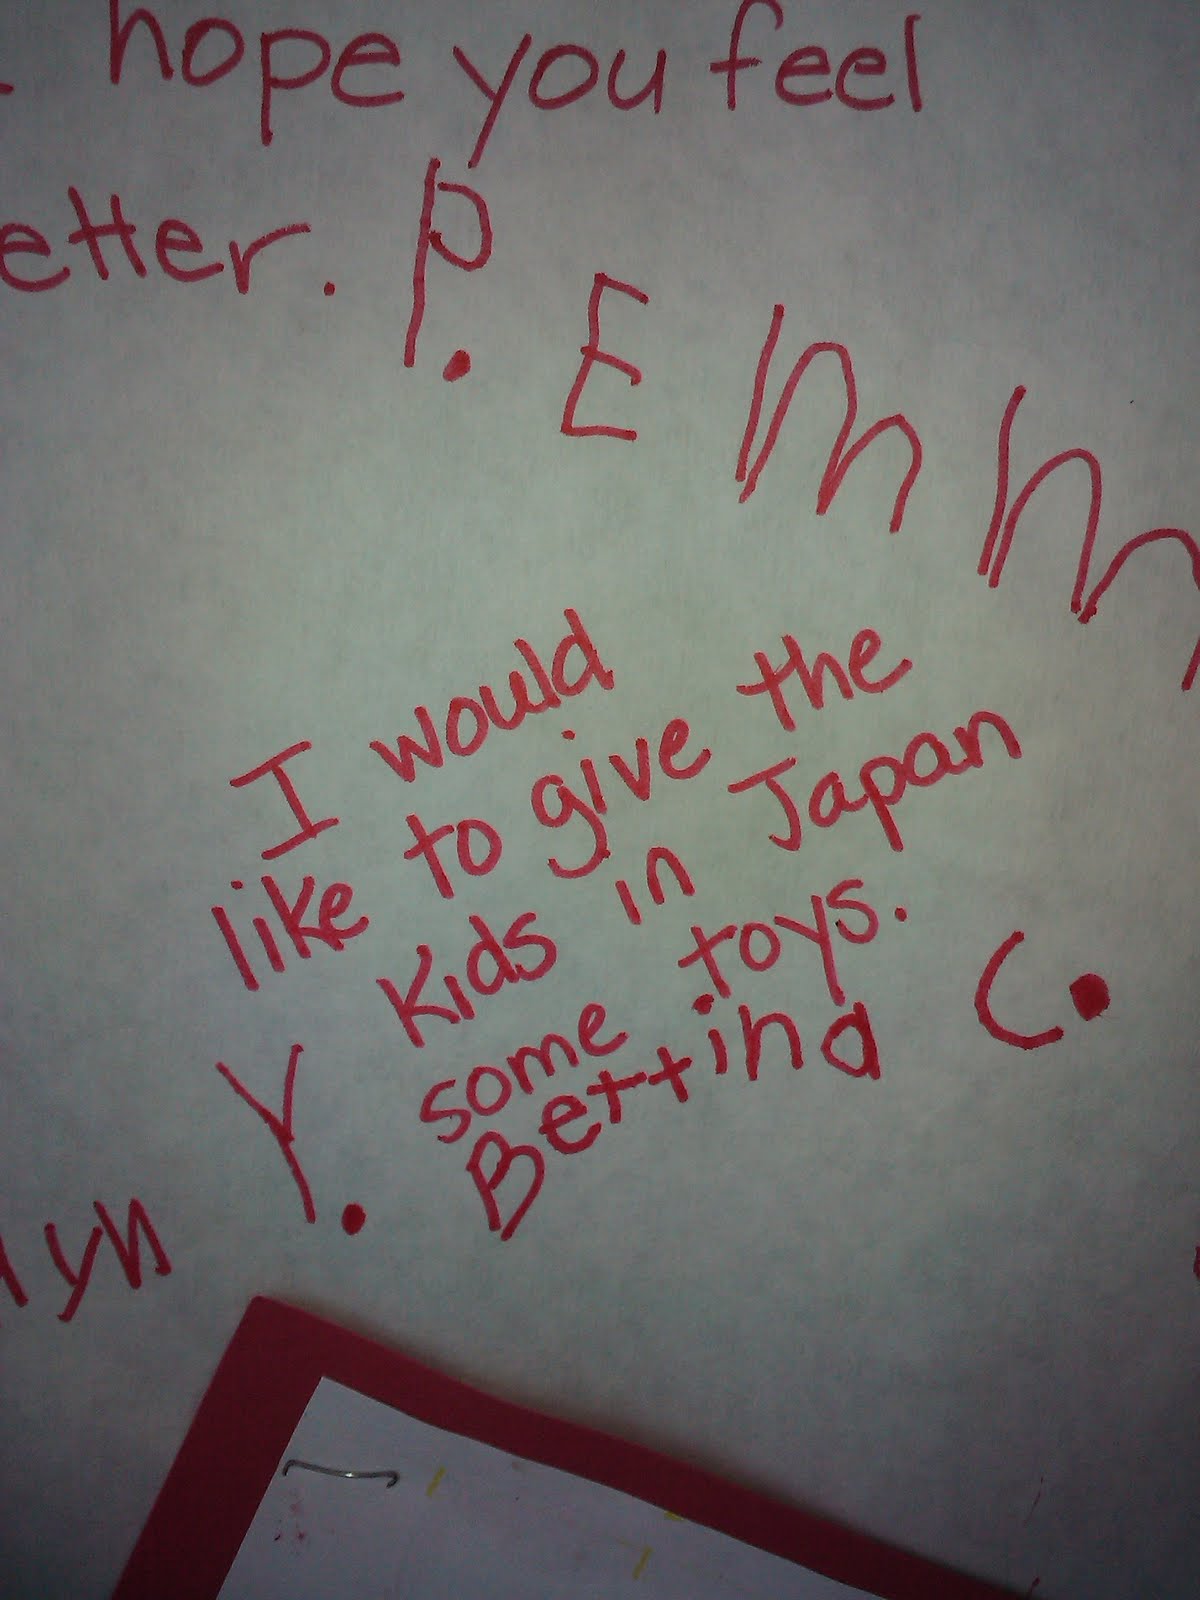 hope you feel
etter. P.
Emm
I would
like to give the
Kids in Japan
some toys.
Bettina C.
yn Y.